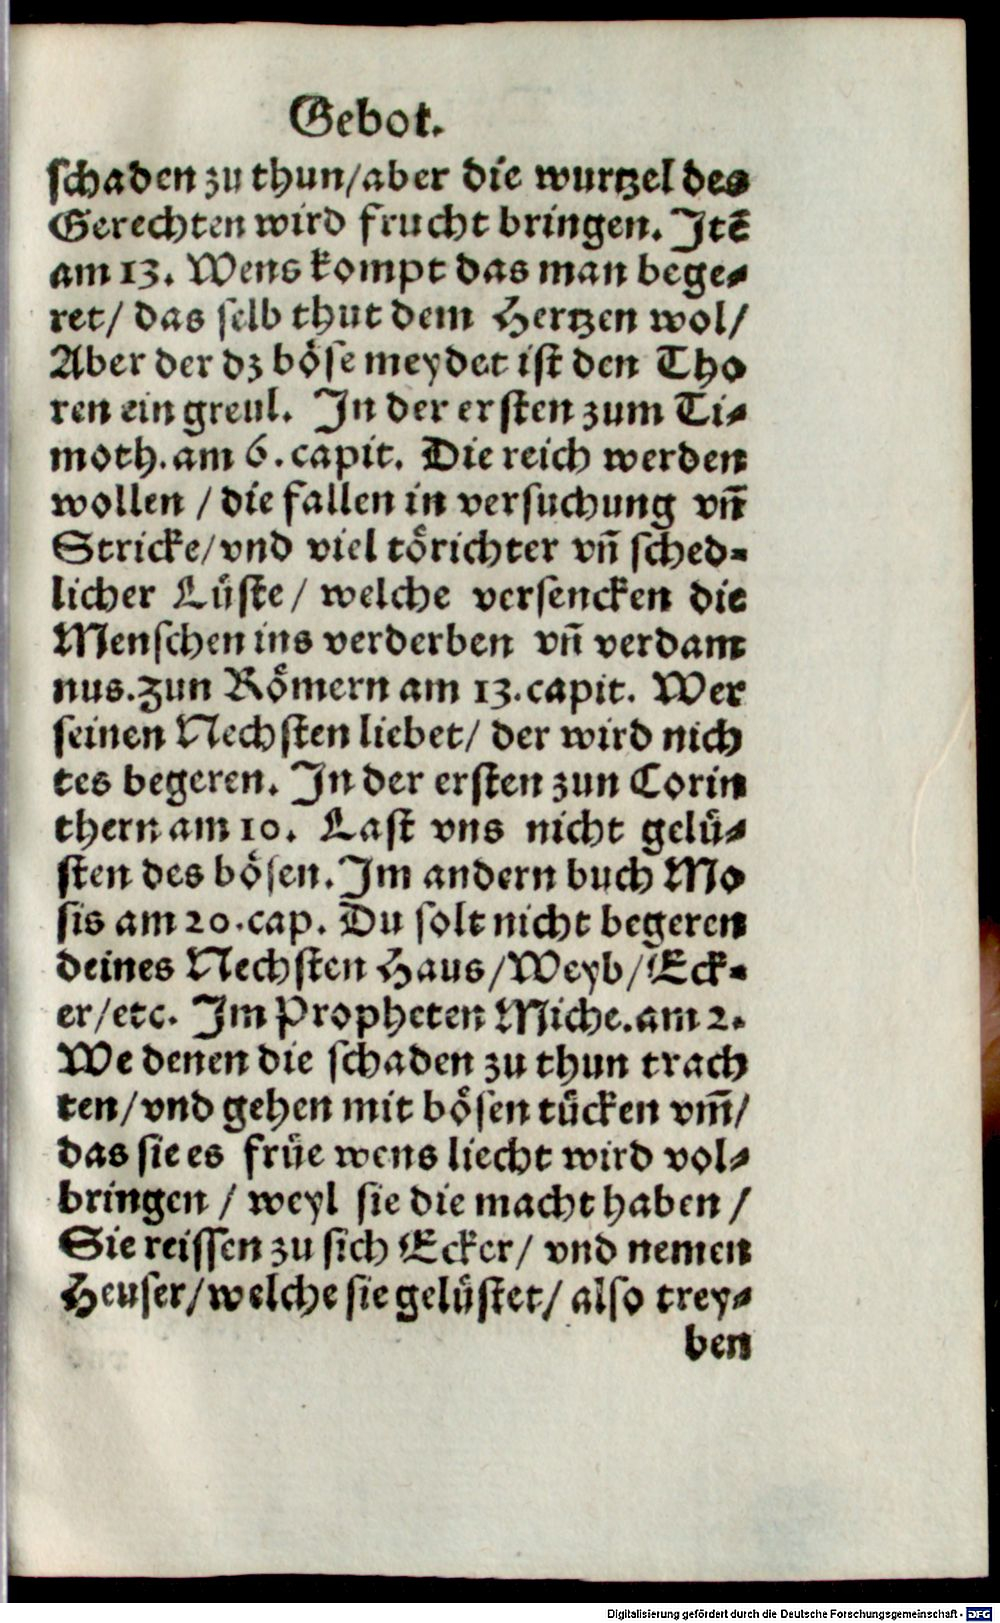 Gebot.
schaden zu thun/aber die wurtzel des
Gerechten wird frucht bringen. Itē
am 13. Wens kompt das man bege-
ret/ das selb thut dem Hertzen wol/
Aber der dz böse meydet ist den Tho
ren ein greul. In der ersten zum Ti-
moth. am 6. capit. Die reich werden
wollen / die fallen in versuchung vn̄
Stricke/vnd viel törichter vn̄ sched-
licher Lüste/ welche versencken die
Menschen ins verderben vn̄ verdam
nus. zun Römern am 13. capit. Wer
seinen Nechsten liebet/ der wird nich
tes begeren. In der ersten zun Corin
thern am 10. Last vns nicht gelü-
sten des bösen. Im andern buch Mo
sis am 20. cap. Du solt nicht begeren
deines Nechsten Haus/Weyb/Eck-
er/etc. Im Propheten Miche. am 2.
We denen die schaden zu thun trach
ten/vnd gehen mit bösen tücken vm̄/
das sie es früe wens liecht wird vol-
bringen / weyl sie die macht haben /
Sie reissen zu sich Ecker/ vnd nemen
Heuser/welche sie gelüstet/ also trey-
ben
Digitalisierung gefördert durch die Deutsche Forschungsgemeinschaft - DFG